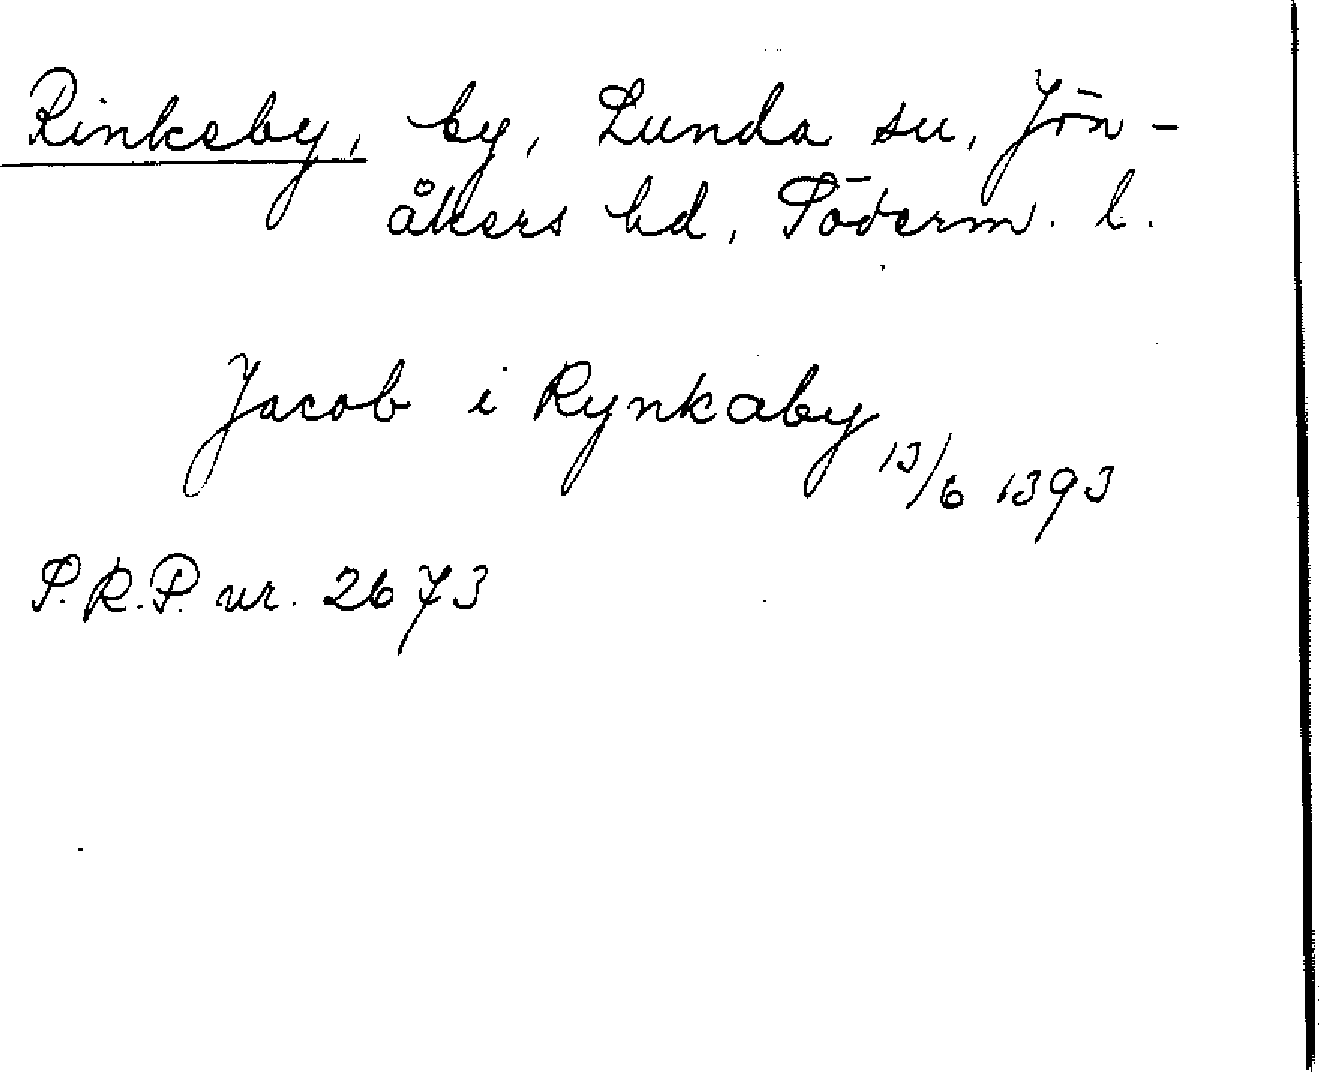 Rinkeby, by, Lunda sn, Jön-
åkers hd, Söderm. l.
Jacob i Rynkaby 13/6 1393
S.R.P. nr. 2673